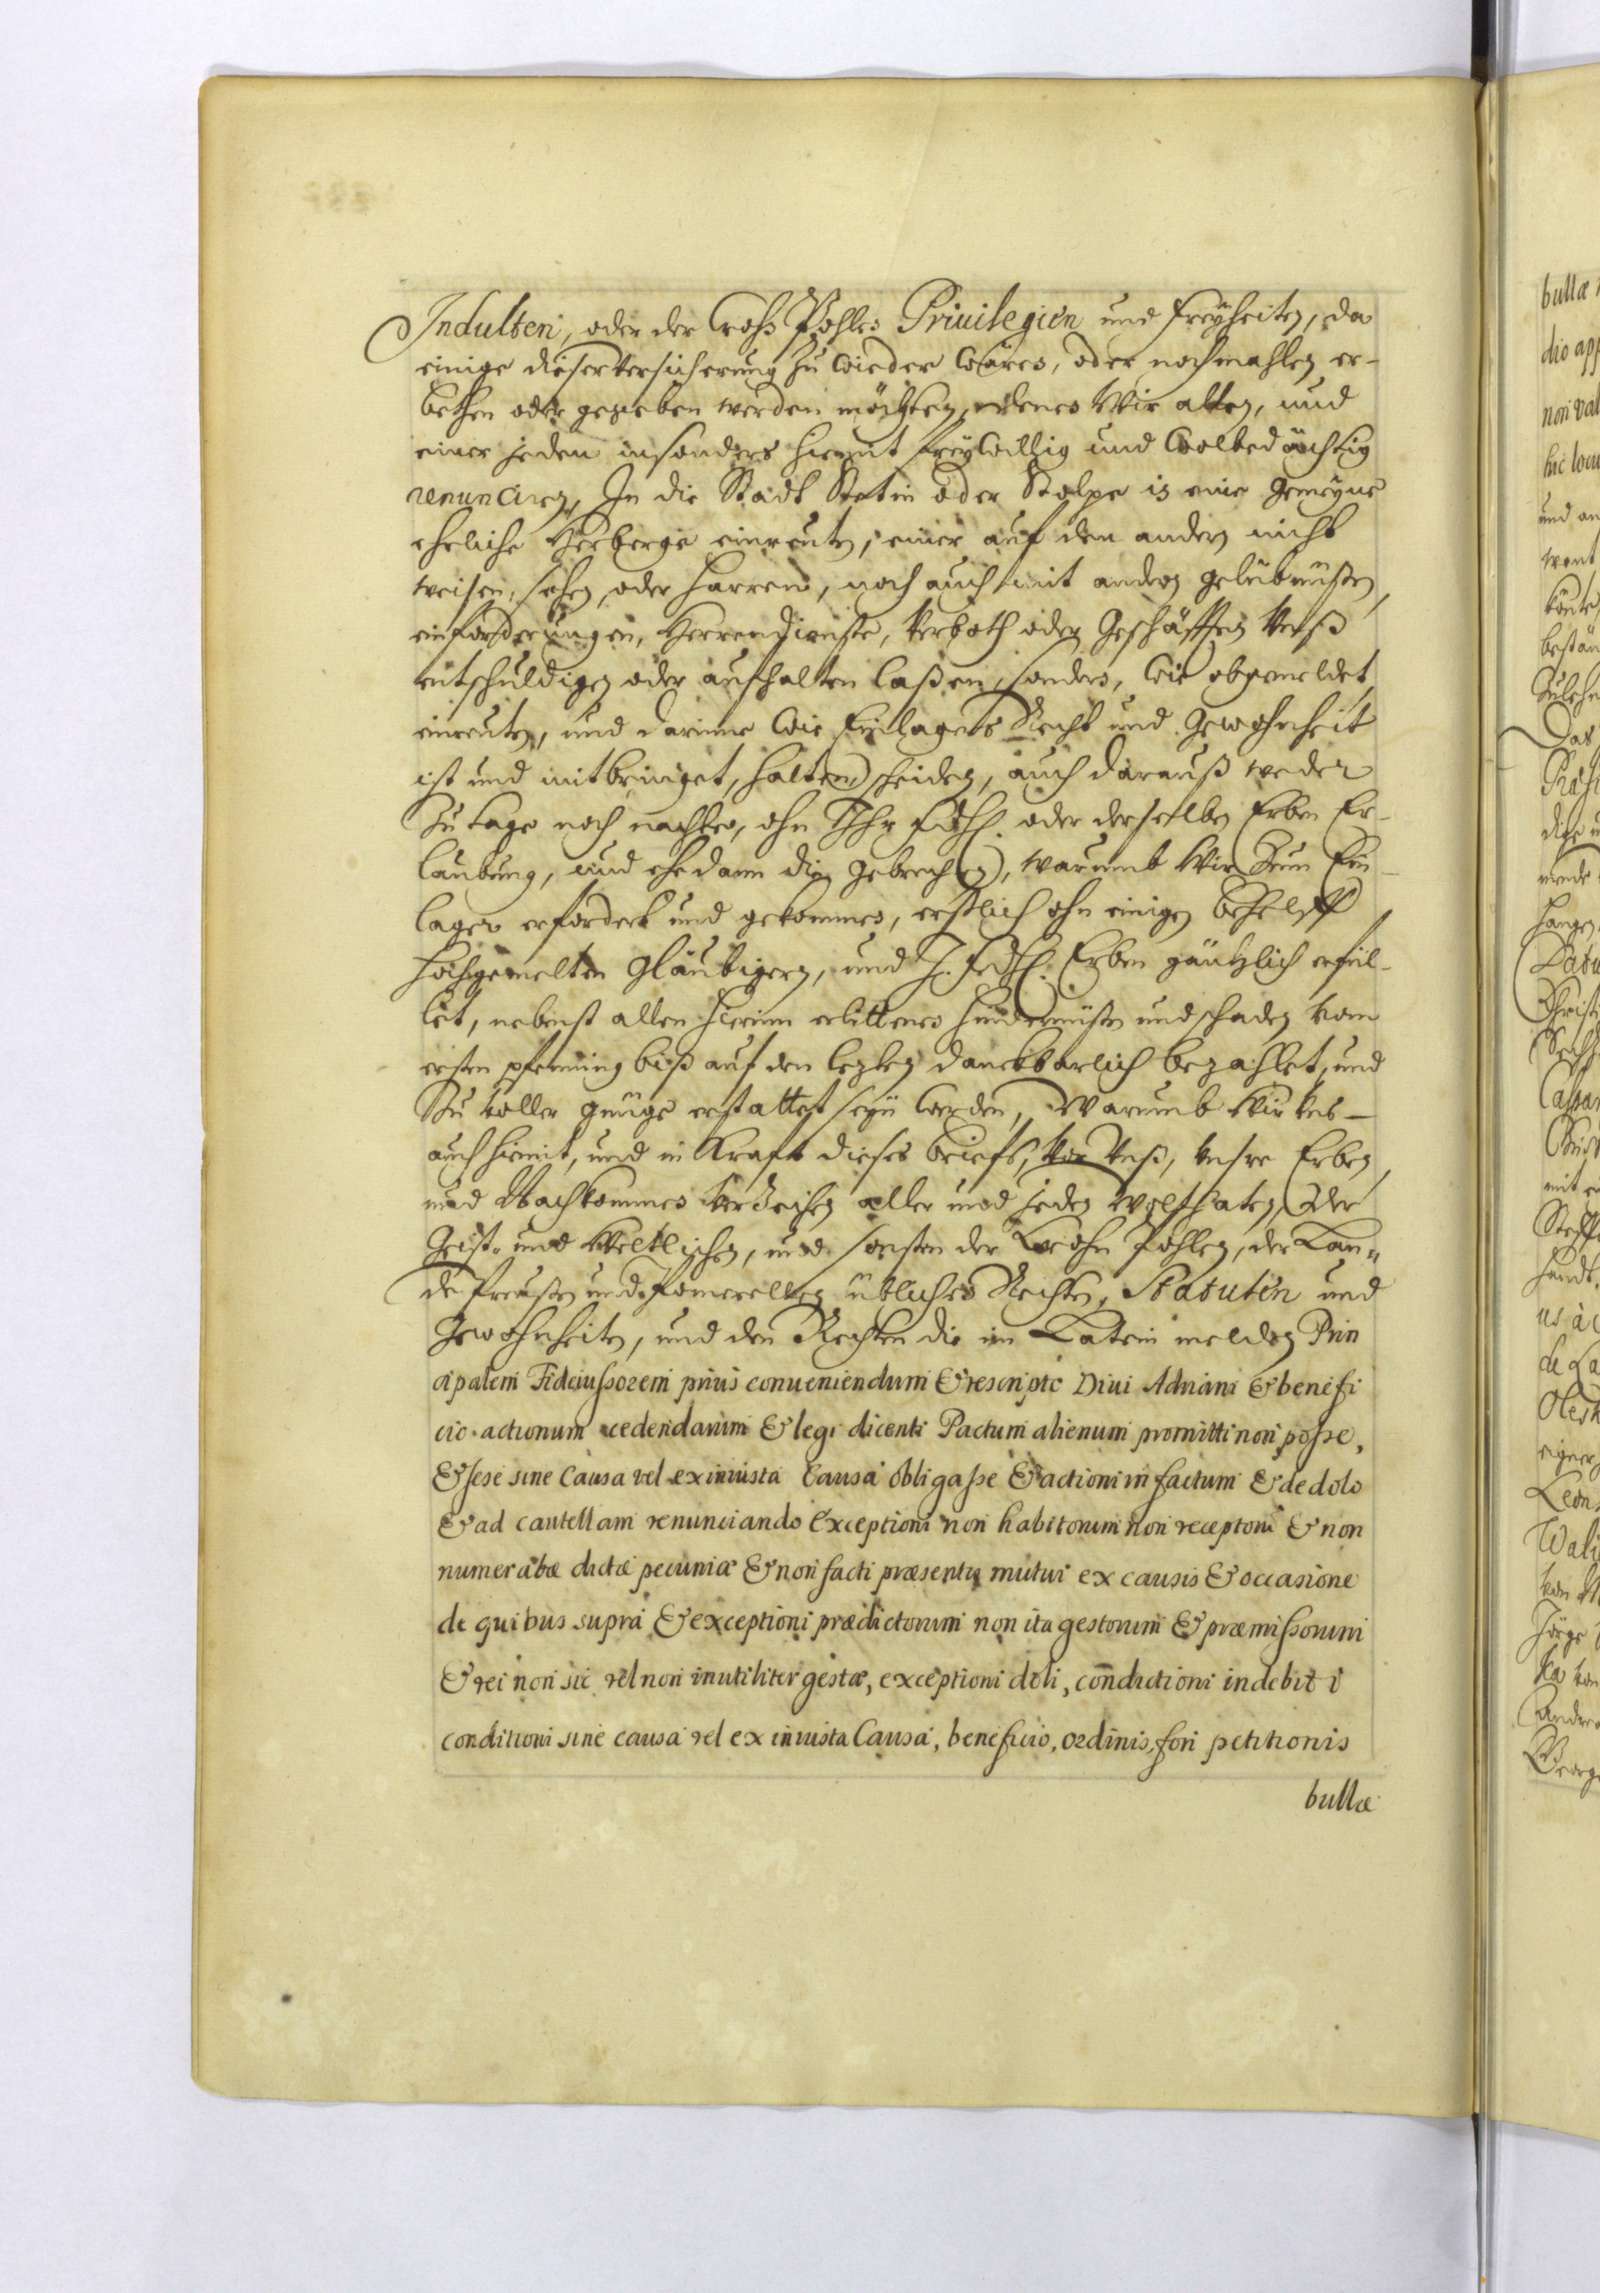 Indulten, oder der Crohn Pohlen Priuilegien und freyheiten, da
einige dieser versicherung zu wieder wären, oder nochmahlen er-
bethen oder gegeben werden möchten, denen Wir allen, und
einer jeden insonders hiemit freywillig und wolbedächtig
renunciren, In die Stadt Stetin oder Stolpe in eine gemeyne
ehrliche Herberge einreuten, einer auf den andern nicht
weisen, sehen, oder harren, noch auch mit andern gelübnüßen,
einforderungen, Herrendienste, verboth oder Geschäfften Vnß
entschuldigen oder aufhalten laßen, sondern, wie obgemeldet
einreuten, und darinne wie Einlagers Recht und Gewohnheit
ist und mitbringet, halten scheiden, auch darauß weder
zu tage noch nachten, ohn Ihr fürstl. oder derselben Erben Er-
laubung, und ehe dann die gebrechen, warumb Wir Zum Ein-
lager erfordert und gekommen, erstlich ohn einigen behelff
hochgemelten Gläubigern, und J. fürstl. Erben gäntzlich erfül-
let, nebenst allen hierinn erlittenen hindernüßen und schaden vom
ersten pfenning biß auf den lezten danckbarlich bezahlet, und
Zu voller gnüge erstattet seyn werden, Warumb Wir Vns
auch hiemit, und in Kraft dieses briefs, vor Vnß, Vnsre Erben
und Nachkommen verzeihen aller und jeden Wolthaten der
Geist- und Weltlichen, und sonsten der Crohn Pohlen, der Lan-
de Preußen und Pomerellen üblichen Rechten, Statuten und
Gewohnheiten, und den Rechten die im Latein melden Prin
cipalem Fideiussorem prius conueniendum & rescripto Diui Adriani & benefi
cio actionum cedendarum & legi dicenti Pactum alienum promitti non posse,
& sese sine Causa vel ex iniusta Causa obligasse & actioni in factum & de dolo
& ad cautellam renunciando Exceptioni non habitorum non receptorum & non
numeratæ dictæ pecuniæ & non facti præsentis mutui ex causis & occasione
de quibus supra & exceptioni prædictorum non ita gestorum & præmissorum
& rei non sic vel non inutiliter gestæ, exceptioni doli, condictioni indebiti
conditioni sine causa vel ex iniusta Causa, beneficio, ordinis, fori petitionis
bullæ